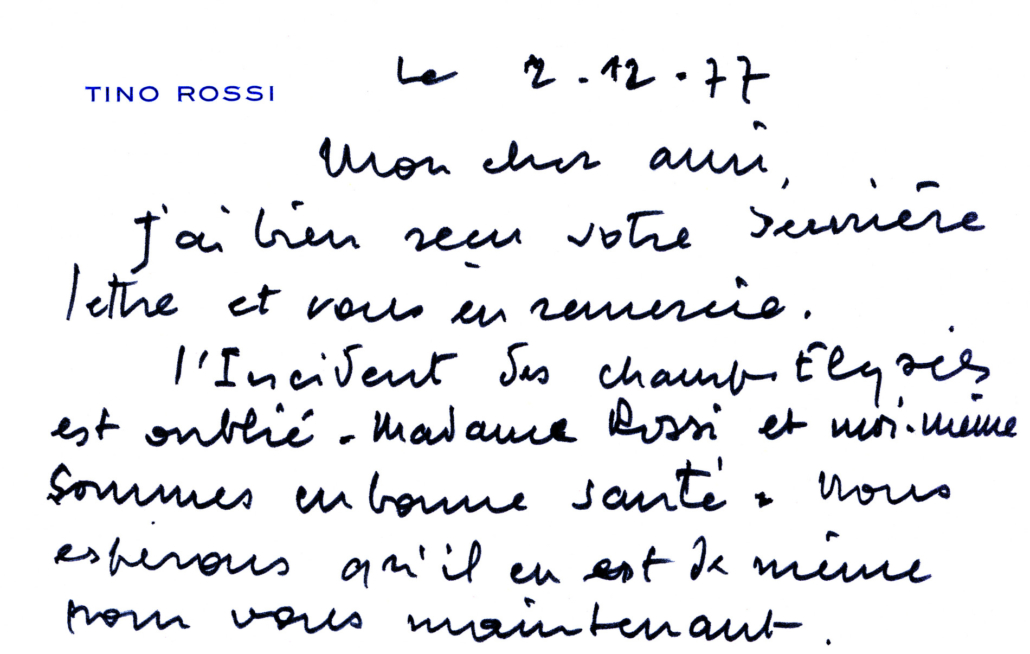 TINO ROSSI
Le 2.12.77
Mon cher ami,
J'ai bien reçu votre dernière
lettre et vous en remercie.
l'Incident des champs Elysées
est oublié. Madame Rossi et moi-même
Sommes en bonne santé. Nous
esperons qu'il en est de même
pour vous maintenant.